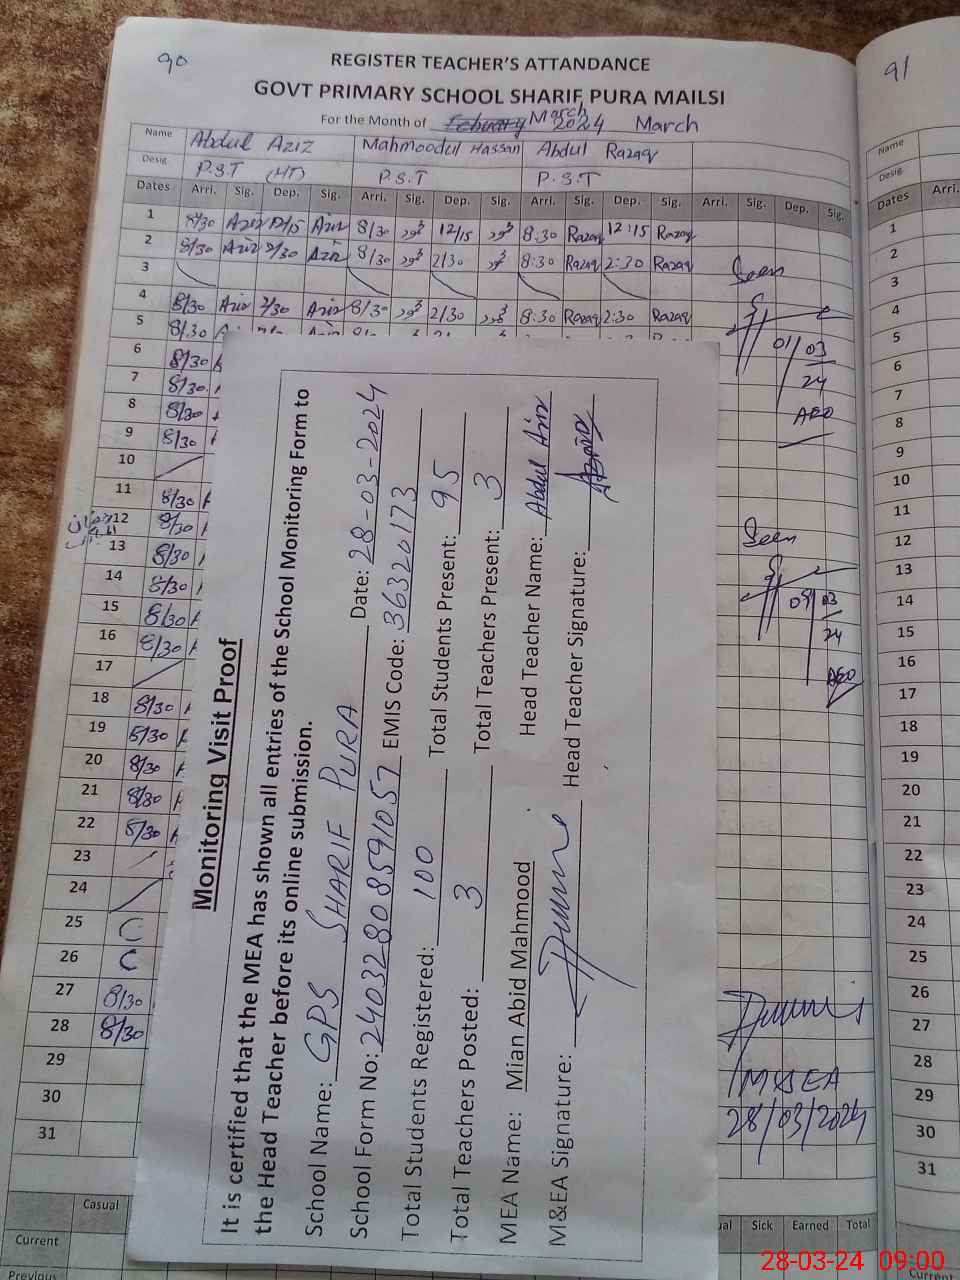 90
REGISTER TEACHER'S ATTANDANCE
GOVT PRIMARY SCHOOL SHARIF PURA MAILSI
For the Month of February March 2024 March
Name Abdul Aziz Mahmoodul Hassan Abdul Razaq
Desig. P.S.T (HT) P.S.T P.S.T
Dates Arri. Sig. Dep. Sig. Arri. Sig. Dep. Sig. Arri. Sig. Dep. Sig. Arri. Sig. Dep. Sig.
1 8/30 Aziz 12/15 Aziz 8/30 12/15 8:30 Razaq 12:15 Razaq
2 8/30 Aziz 2/30 Aziz 8/30 2/30 8:30 Razaq 2:30 Razaq
3
4 8/30 Aziz 2/30 Aziz 8/30 2/30 8:30 Razaq 2:30 Razaq
5 8/30
6 8/30
7 8/30
8 8/30
9 8/30
10
11 8/30
12 8/30
13 8/30
14 8/30
15 8/30
16 8/30
17
18 8/30
19 8/30
20 8/30
21 8/30
22 8/30
23
24
25
26
27 8/30
28 8/30
29
30
31
Seen
01/03
24
AEO
Seen
03
24
AEO
M&EA
28/03/2024
Casual
Current
Previous
Sick Earned Total
Monitoring Visit Proof
It is certified that the MEA has shown all entries of the School Monitoring Form to
the Head Teacher before its online submission.
School Name: GPS SHARIF PURA Date: 28-03-2024
School Form No: 24032808591057 EMIS Code: 36320173
Total Students Registered: 100 Total Students Present: 95
Total Teachers Posted: 3 Total Teachers Present: 3
MEA Name: Mian Abid Mahmood Head Teacher Name: Abdul Aziz
M&EA Signature: Head Teacher Signature:
91
Name
Desig.
Dates Arri.
1
2
3
4
5
6
7
8
9
10
11
12
13
14
15
16
17
18
19
20
21
22
23
24
25
26
27
28
29
30
31
Current
28-03-24 09:00